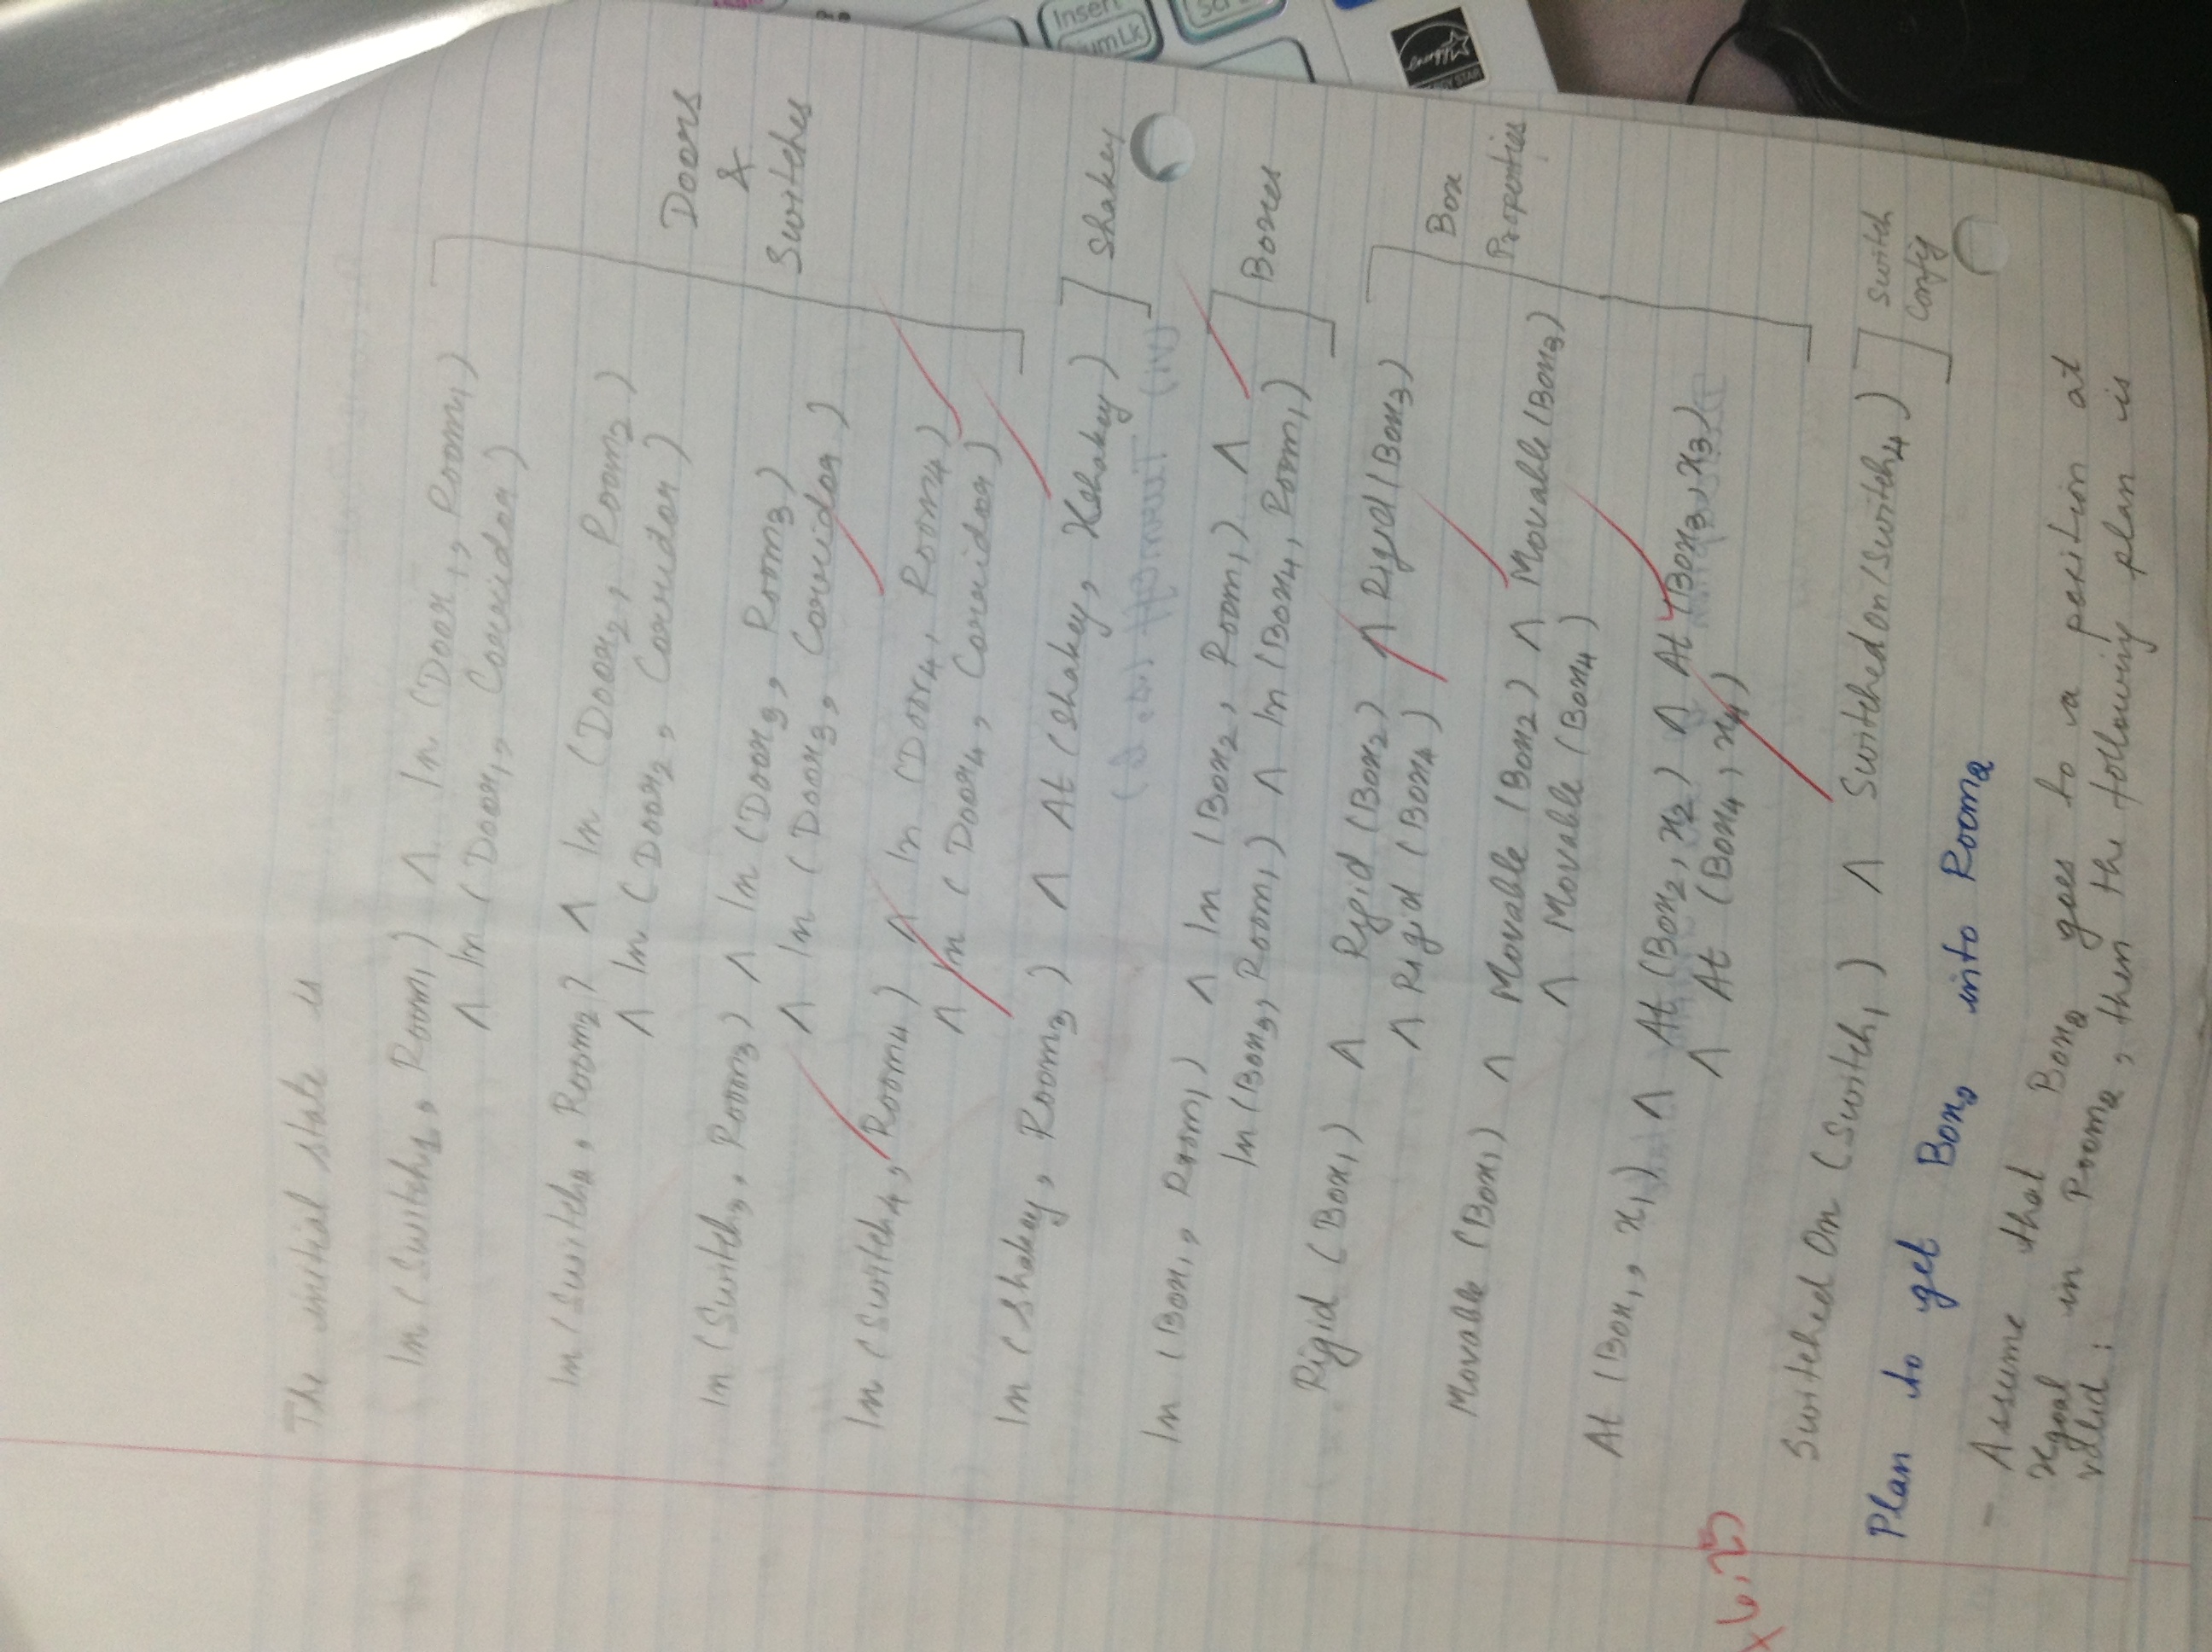 The initial state is
In (Switch₁, Room₁) ∧ In (Door₁, Room₁)
∧ In (Door₁, Corridor)
In (Switch₂, Room₂) ∧ In (Door₂, Room₂)
∧ In (Door₂, Corridor)
Doors
&
Switches
In (Switch₃, Room₃) ∧ In (Door₃, Room₃)
∧ In (Door₃, Corridor)
In (Switch₄, Room₄) ∧ In (Door₄, Room₄)
∧ In (Door₄, Corridor)
In (Shakey, Room₃) ∧ At (Shakey, xshakey)
Shakey
In (Box₁, Room₁) ∧ In (Box₂, Room₁) ∧
In (Box₃, Room₁) ∧ In (Box₄, Room₁)
Boxes
Rigid (Box₁) ∧ Rigid (Box₂) ∧ Rigid (Box₃)
∧ Rigid (Box₄)
Box
Properties
Movable (Box₁) ∧ Movable (Box₂) ∧ Movable (Box₃)
∧ Movable (Box₄)
At (Box₁, x₁) ∧ At (Box₂, x₂) ∧ At (Box₃, x₃)
∧ At (Box₄, x₄)
+6.25
Switched On (Switch₁) ∧ Switched On (Switch₄)
Switch
Config
Plan to get Box₂ into Room₂
- Assume that Box₂ goes to a position at
xgoal in Room₂, then the following plan is
valid :
Insert
NumLk
energy